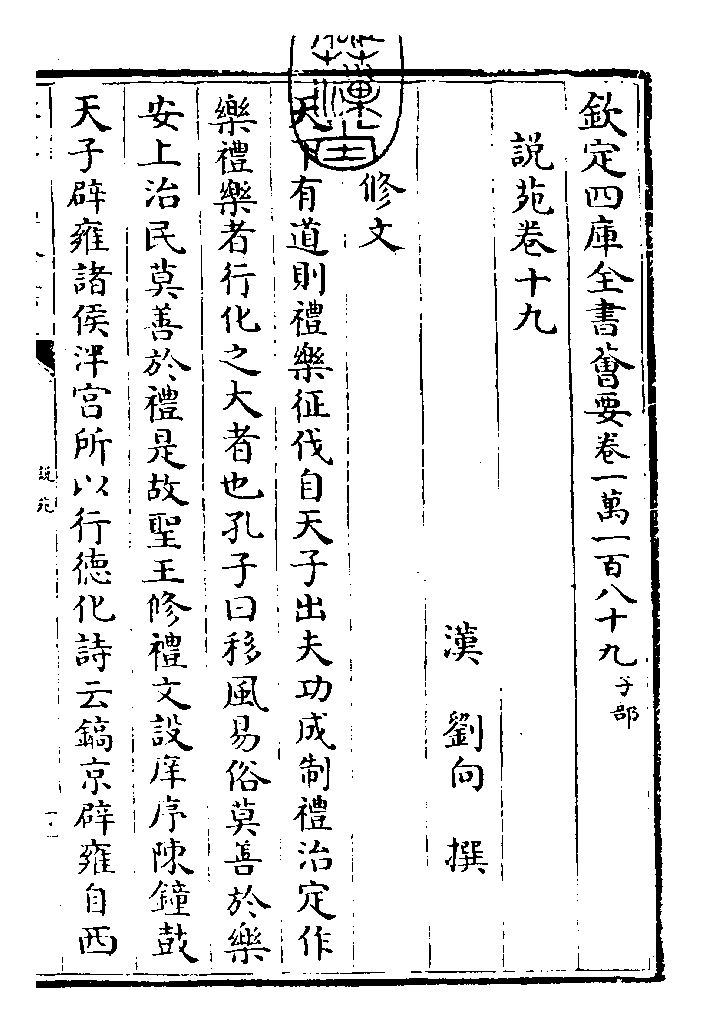 欽定四庫全書薈要卷一萬一百八十九子部
說苑卷十九
漢劉向撰
修文
天下有道則禮樂征伐自天子出夫功成制禮治定作
樂禮樂者行化之大者也孔子曰移風易俗莫善於樂
安上治民莫善於禮是故聖王修禮文設庠序陳鐘鼓
天子辟雍諸侯泮宮所以行德化詩云鎬京辟雍自西
說苑